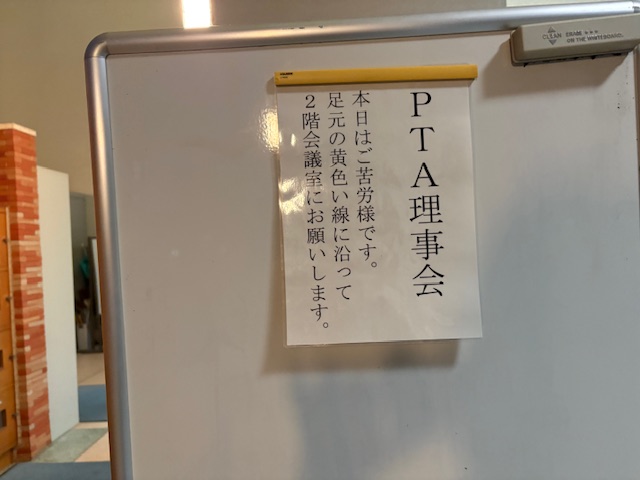 PTA理事会
本日はご苦労様です。
足元の黄色い線に沿って
2階会議室にお願いします。
CLEAN ERASE
ON THE WHITEBOARD.